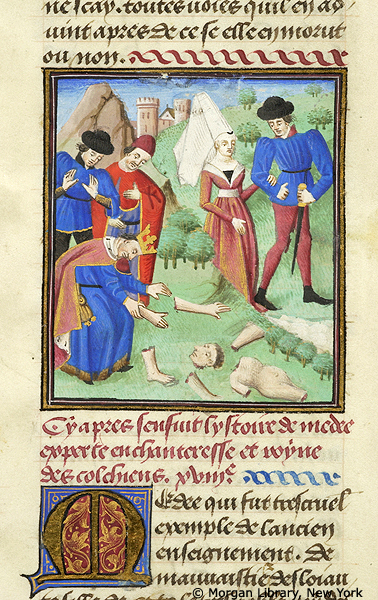 ne scay. toutes voies quil en ad
uint apres de ce se elle en morut
ou non.
Cy apres sensuit lystoire de medee
experte enchanteresse et royne
des colchiens. xviiie.
Medee qui fut trescruel
exemple de lancien
enseignement. De
mauuaistie desloiau
© Morgan Library, New York